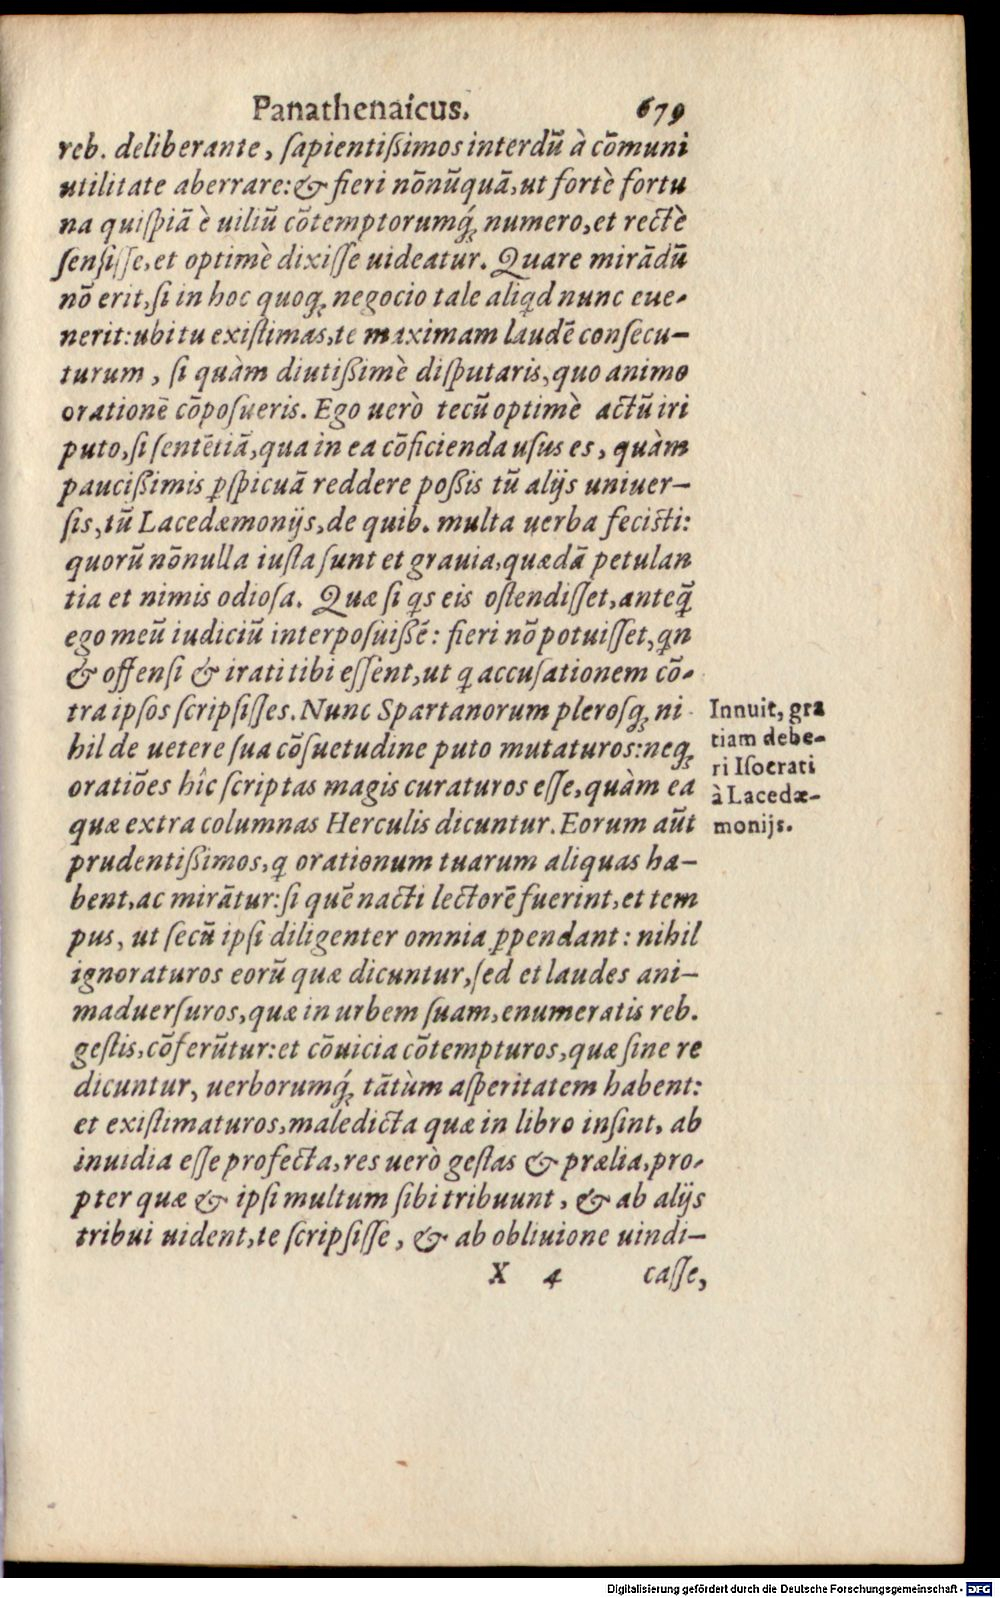 Panathenaicus. 679
reb. deliberante, ſapientißimos interdũ à cõmuni
utilitate aberrare: & fieri nõnũquã, ut fortè fortu
na quiſpiã è uiliũ cõtemptorumq́; numero, et rectè
ſenſiſſe, et optimè dixiſſe uideatur. Quare mirãdũ
nõ erit, ſi in hoc quoq; negocio tale aliqd nunc eue-
nerit: ubi tu exiſtimas, te maximam laudẽ conſecu-
turum, ſi quàm diutißimè diſputaris, quo animo
orationẽ cõpoſueris. Ego uerò tecũ optimè actũ iri
puto, ſi ſentẽtiã, qua in ea cõficienda uſus es, quàm
paucißimis ꝑſpicuã reddere poßis tũ alijs uniuer-
ſis, tũ Lacedæmonijs, de quib. multa uerba feciſti:
quorũ nõnulla iuſta ſunt et grauia, quædã petulan
tia et nimis odioſa. Quæ ſi qs eis oſtendiſſet, anteq̃
ego meũ iudiciũ interpoſuißẽ: fieri nõ potuiſſet, qn
& offenſi & irati tibi eſſent, ut q accuſationem cõ-
tra ipſos ſcripſiſſes. Nunc Spartanorum pleroſq; ni
hil de uetere ſua cõſuetudine puto mutaturos: neq;
oratiões hîc ſcriptas magis curaturos eſſe, quàm ea
quæ extra columnas Herculis dicuntur. Eorum aũt
prudentißimos, q orationum tuarum aliquas ha-
bent, ac mirãtur: ſi quẽ nacti lectorẽ fuerint, et tem
pus, ut ſecũ ipſi diligenter omnia ꝑpendant: nihil
ignoraturos eorũ quæ dicuntur, ſed et laudes ani-
maduerſuros, quæ in urbem ſuam, enumeratis reb.
geſtis, cõferũtur: et cõuicia cõtempturos, quæ ſine re
dicuntur, uerborumq́; tãtùm aſperitatem habent:
et exiſtimaturos, maledicta quæ in libro inſint, ab
inuidia eſſe profecta, res uerò geſtas & prælia, pro-
pter quæ & ipſi multum ſibi tribuunt, & ab alijs
tribui uident, te ſcripſiſſe, & ab obliuione uindi-
X 4 caſſe,
Innuit, gra
tiam debe-
ri Iſocrati
à Lacedæ-
monijs.
Digitalisierung gefördert durch die Deutsche Forschungsgemeinschaft - DFG